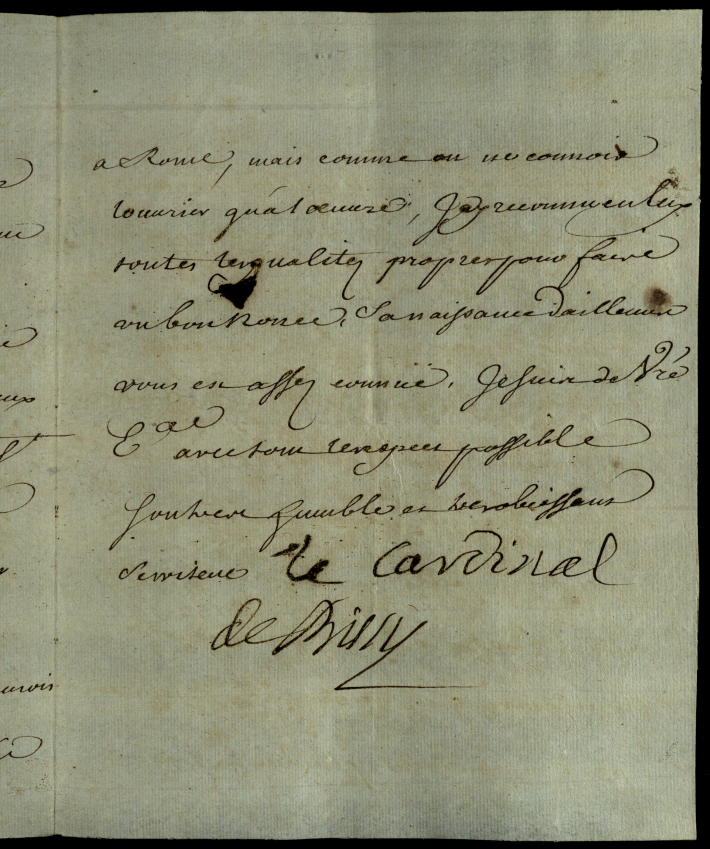 a Rome, mais comme on ne connoit
louurier qu'a l'oeuure, Jay reconnu en luy
toutes les qualitez propres pour faire
un bon Nonce, Sa naissance d'ailleurs
vous est assez connuë. Je suis de Vre
E ce avec tout le respect possible
Son tres humble et tres obeissant
serviteur le Cardinal
de Bissy